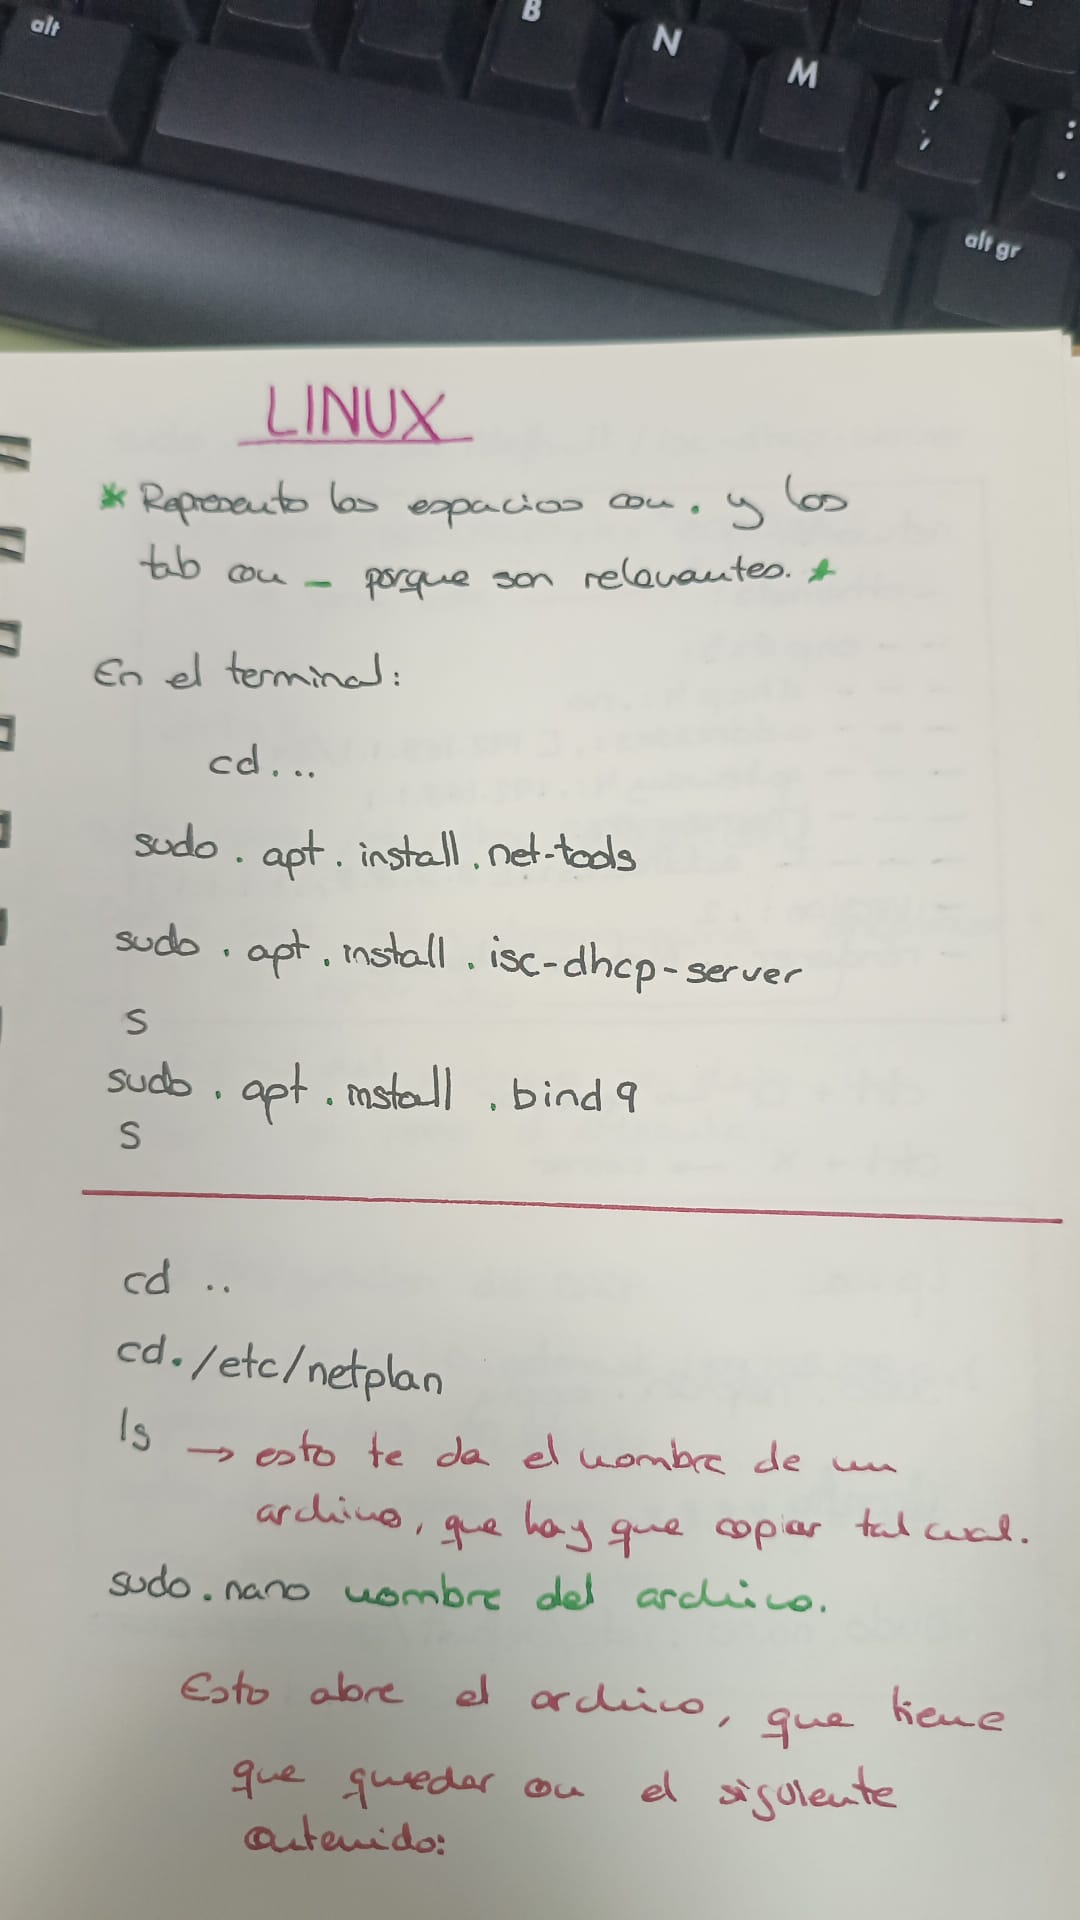 alt
B
N
M
;
,
:
.
alt gr
LINUX
* Represento los espacios con . y los
tab con - porque son relevantes. *
En el terminal:
cd...
sudo . apt . install . net-tools
sudo . apt . install . isc-dhcp-server
S
sudo . apt . install . bind9
S
cd ..
cd./etc/netplan
ls → esto te da el nombre de un
archivo, que hay que copiar tal cual.
sudo.nano nombre del archivo.
Esto abre el archivo, que tiene
que quedar con el siguiente
contenido: